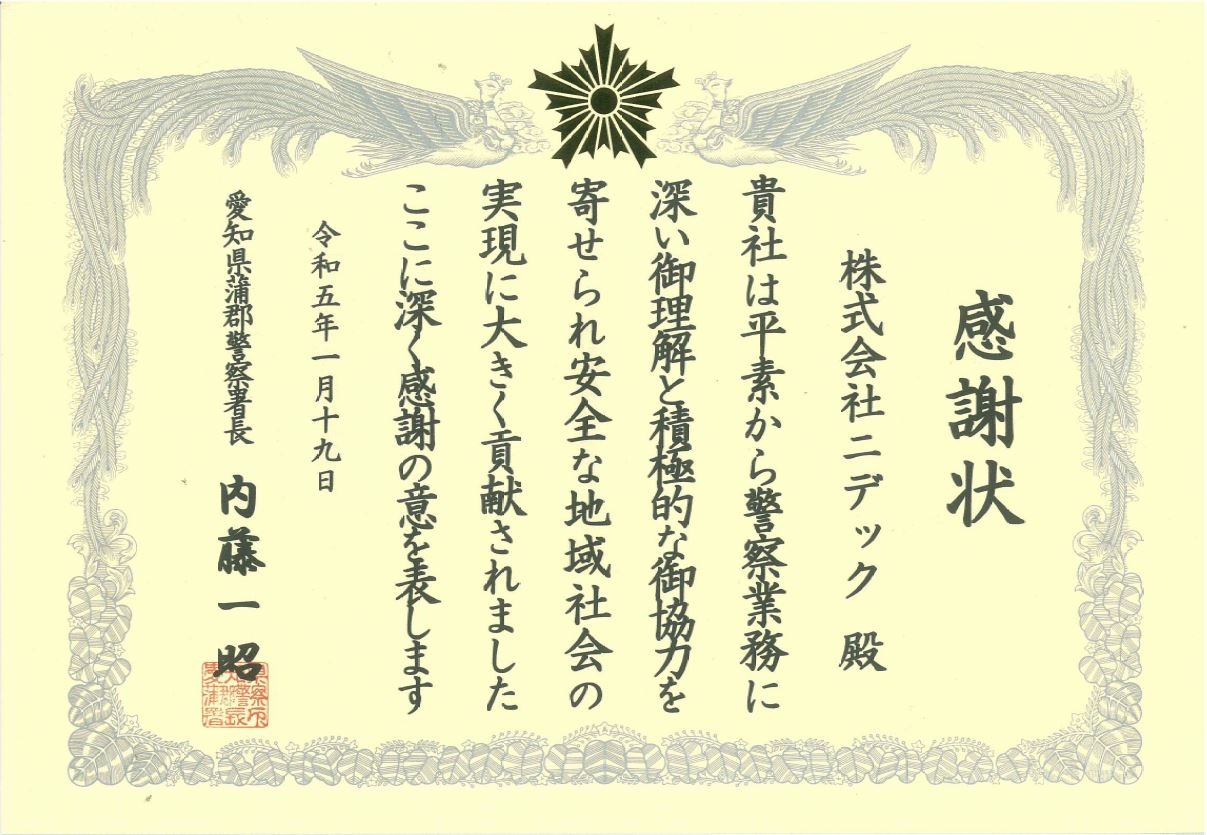 感謝状
株式会社ニデック 殿
貴社は平素から警察業務に
深い御理解と積極的な御協力を
寄せられ安全な地域社会の
実現に大きく貢献されました
ここに深く感謝の意を表します
令和五年一月十九日
愛知県蒲郡警察署長 内藤一昭